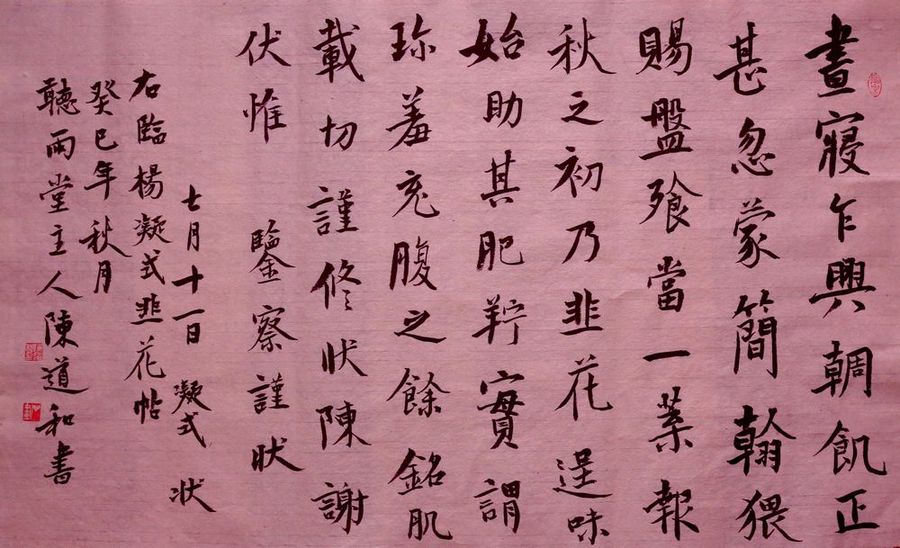 晝寢乍興朝飢正
甚忽蒙簡翰猥
賜盤飱當一葉報
秋之初乃韭花逞味
始助其肥羜實謂
珎羞充腹之餘銘肌
載切謹修狀陳謝
伏惟鑒察謹狀
七月十一日凝式状
右臨楊凝式韭花帖
癸巳年秋月
聽雨堂主人陳道和書